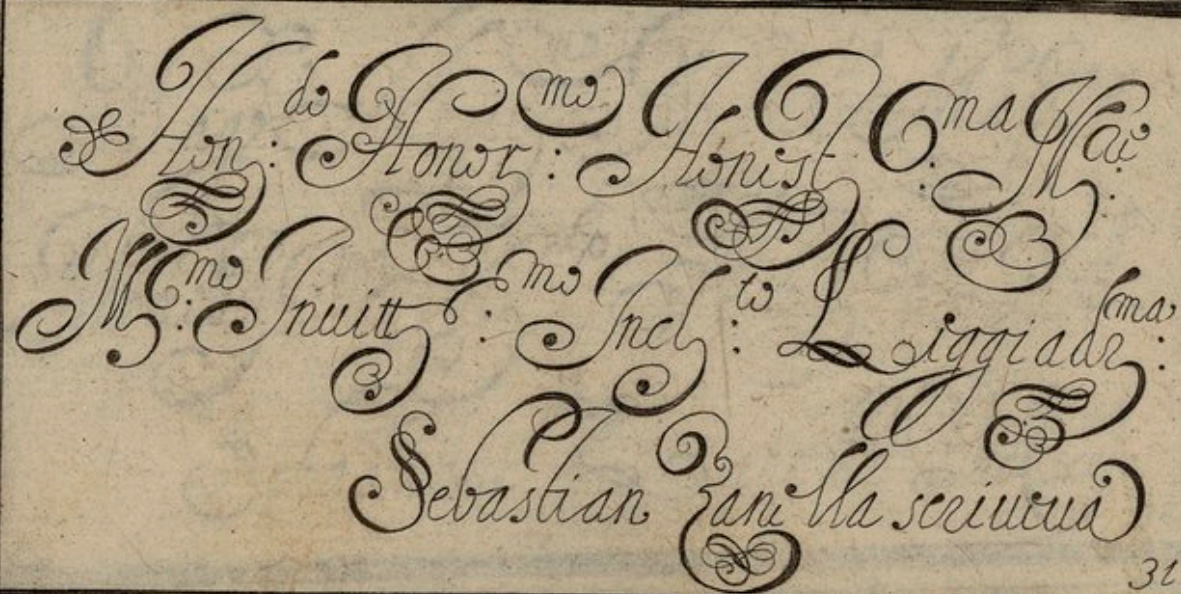 Hon:do Honor:mo Honest:ma Mai:
M:mo Inuitt:mo Incl:to Liggiadr:ma
Sebastian Zanella scriueua
31